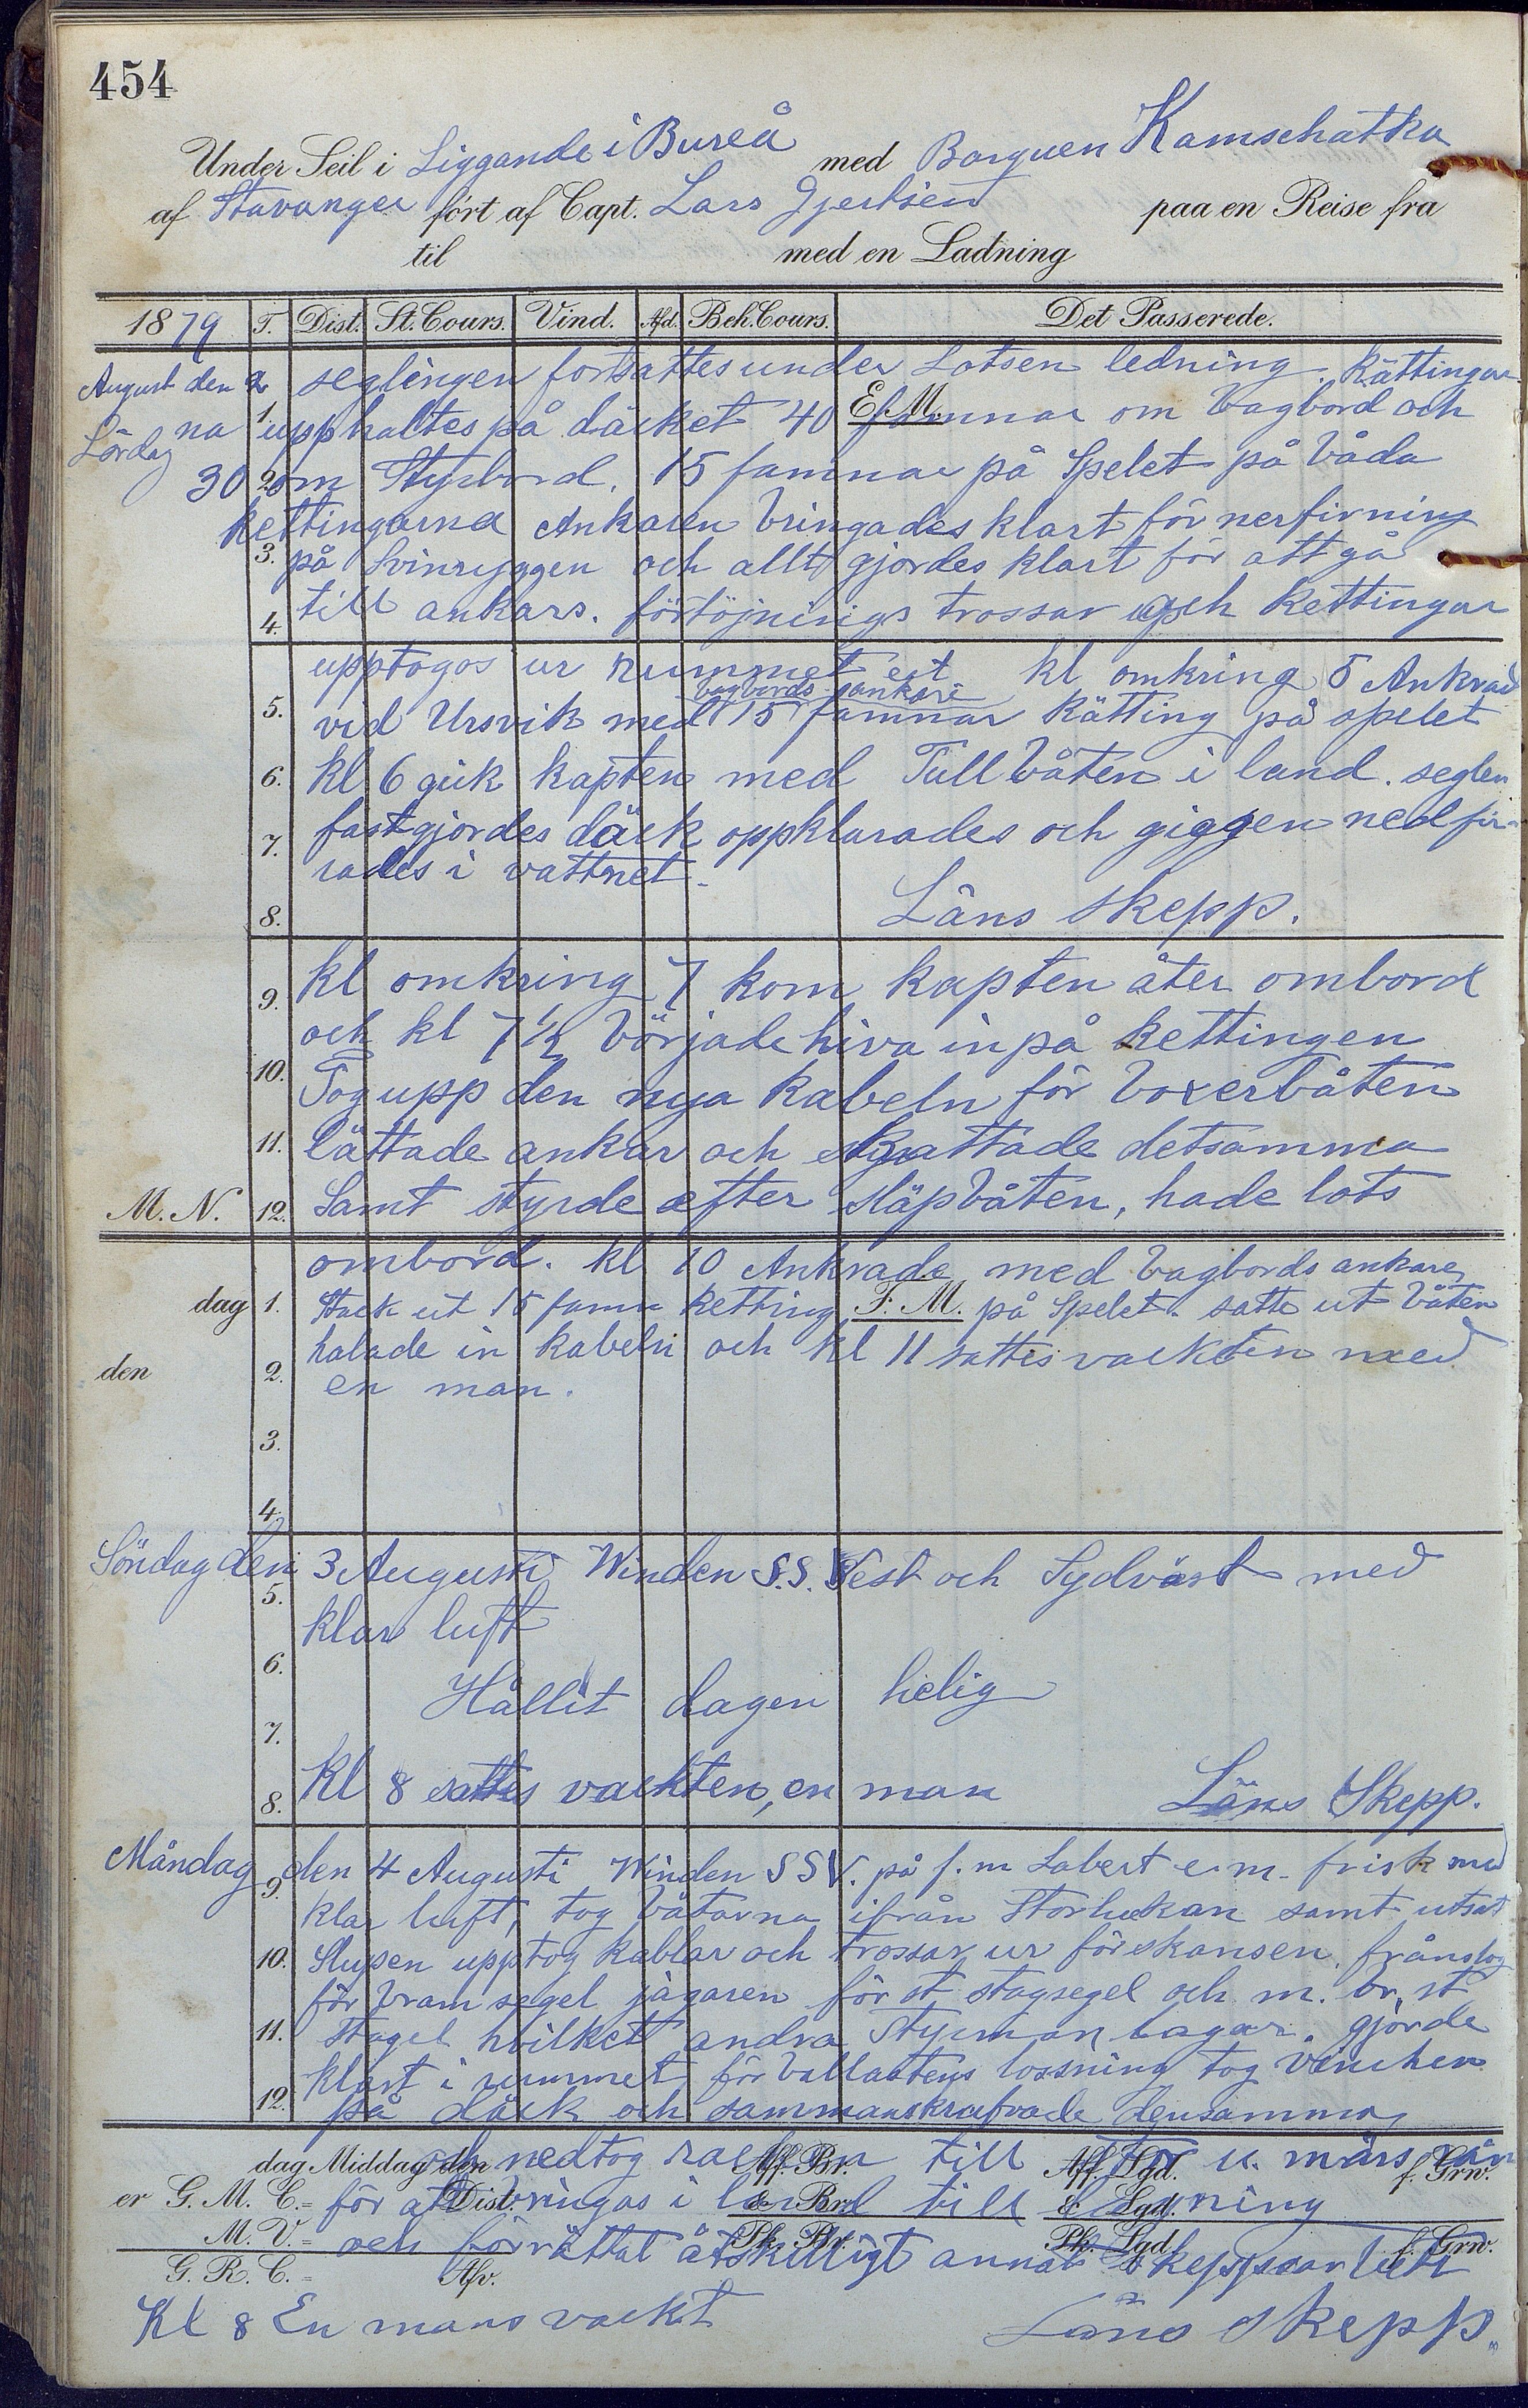 454
Under Seil i Liggande i Bureå med Barquen Kamschatka
af Stavanger ført af Capt. Lars Gjertsen paa en Reise fra
til med en Ladning
1879 T. Dist. St. Cours. Vind. Afd. Beh. Cours. Det Passerede.
August den 2 seglingen fortsattes under Lotsen ledning. Kättingar
E. M.
Lördag na 1. upphaltes på däcket 40 famnar om bagbord och
30 2. om Styrbord. 15 famnar på Spelet på båda
kettingarna Ankaren bringades klart för nerfirning
3. på Svinryggen och allt gjordes klart för att gå
4. till ankars. förtöjnings trossar och kettingar
upptogos ur rummet kl omkring 5 Ankrad
bagbords ankare
5. vid Ursvik med 15 famnar Kätting på spelet
6. kl 6 gick kapten med Tullbåten i land. seglen
7. fastgjordes däck oppklarades och giggen nedfi-
rades i vattnet.
8. Läns skepp.
9. kl omkring 7 kom kapten åter ombord
och kl 7½ började hiva in på kettingen
10. Tog upp den nya kabeln för boxerbåten
11. lättade ankar och kattade detsamma
M. N. 12. Samt styrde efter släpbåten, hade lots
ombord. kl 10 Ankrade med bagbords ankare
dag 1. Stack ut 15 famn ketting F. M. på Spelet. satte ut båten
den 2. halade in kabeln och kl 11 sattes vackten med
en man.
3.
4.
Söndag den 3 Augusti Winden S.S. Vest och Sydväst med
5.
klar luft
6.
Hållit dagen helig
7.
8. Kl 8 sattes vackten, en man Läns Skepp.
Måndag den 4 Augusti Winden SSV. på f.m Laber t e.m. frisk med
9.
klar luft, tog båtarna ifrån Storluckan samt utsat
10. Slupen upptog kablar och trossar ur förskansen, frånslog
för bramsegel jagaren för st stagsegel och m. br. st
11. Stagel hvilket andra Styrman lagar. gjorde
klart i rummet för ballastens lossning tog vinchen
12. på däck och sammanskrufvade densamma
dag Middag den Aff. Br. Aff. Lgd. f. Grw.
och nedtog till u. märs rån
er G. M. C. = Dist. & Br. & Lgd.
för att bringas i land till lagning
M. V. = Pk. Br. Pk. Lgd. f. Grw.
och förrättat åtskilligt annat skeppsarbete
G. R. C. = Afv.
Kl 8 En mans vackt Läns skepp.